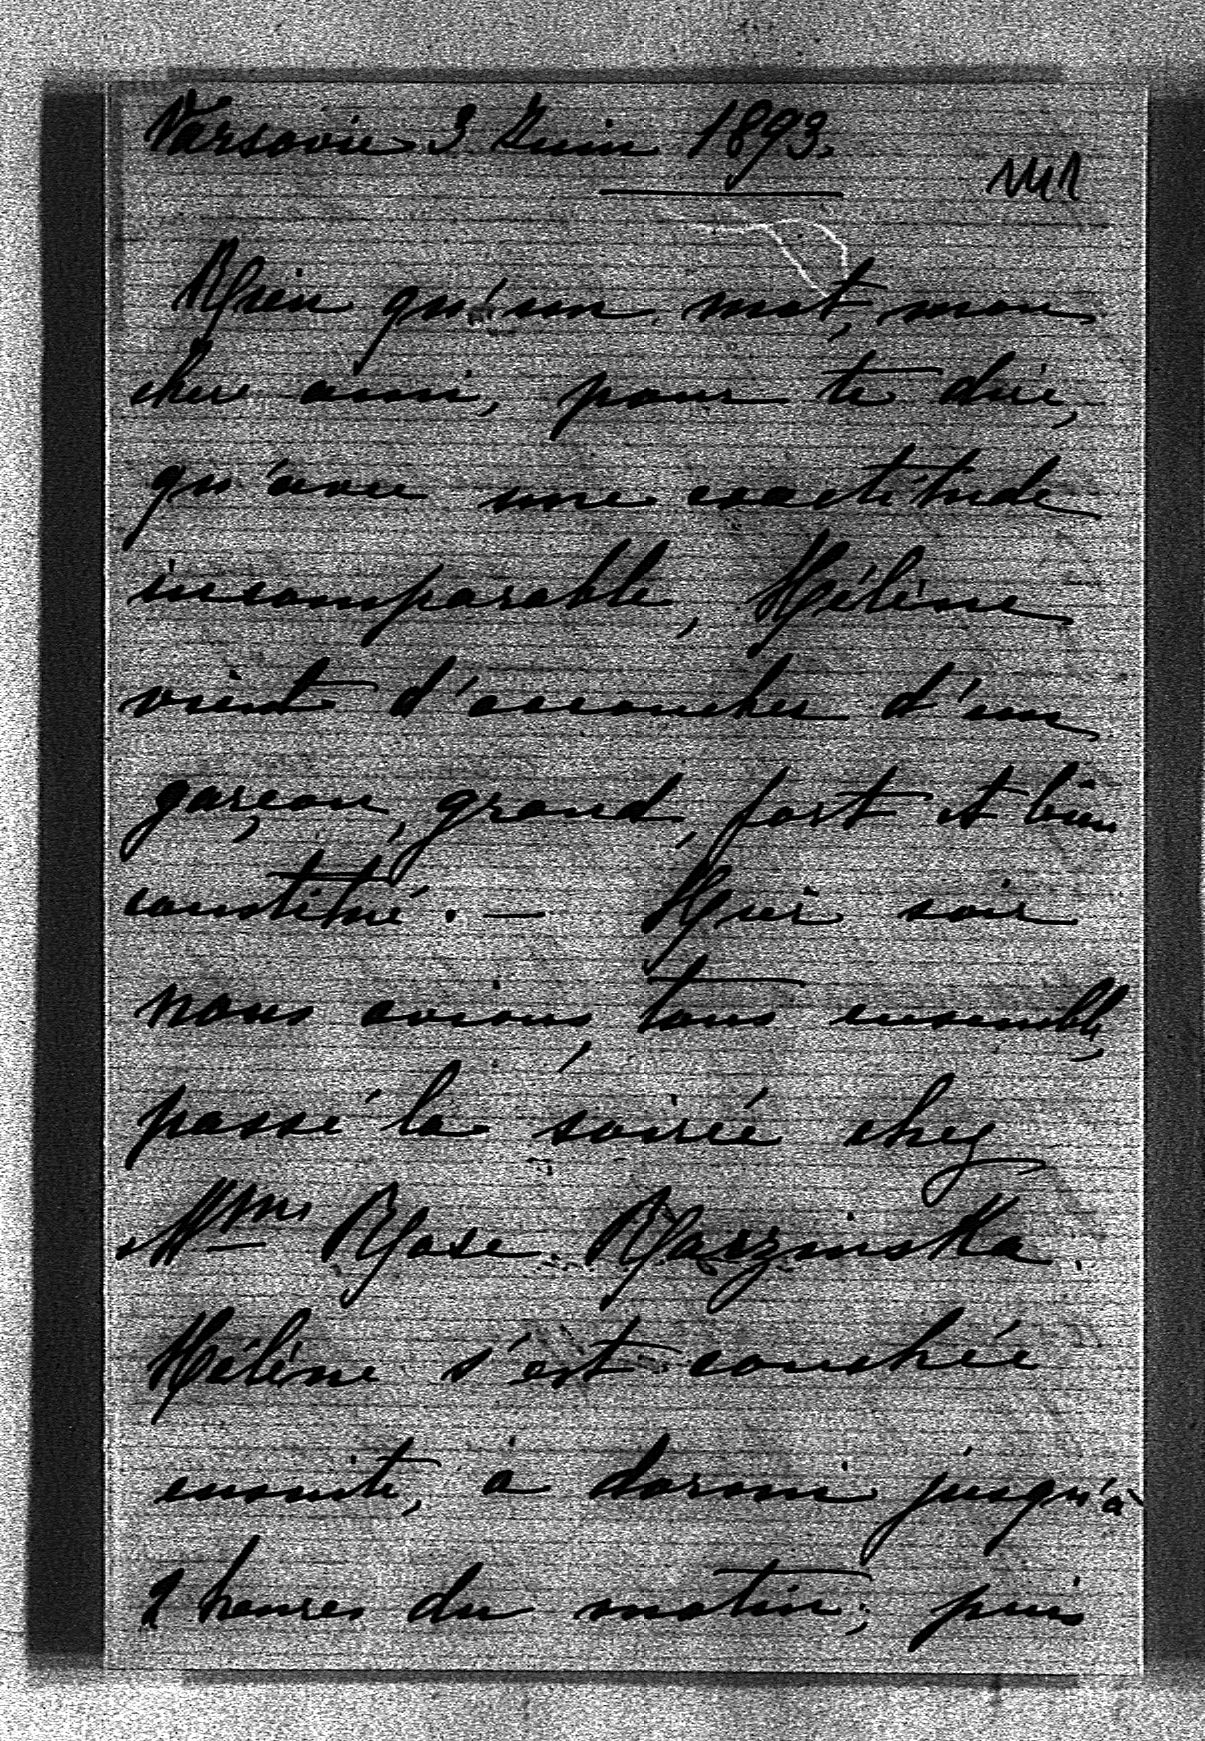 Varsovie 3 Juin 1893.
1141
Rien qu'un mot, mon
cher ami, pour te dire,
qu'avec une exactitude
incomparable, Hélène
vient d'accoucher d'un
garçon, grand, fort et bien
constitué. — Hier soir
nous avions, tous ensemble,
passé la soirée chez
Mme Rose
Hélène s'est couchée
ensuite, a dormi jusqu'à
2 heures du matin; puis